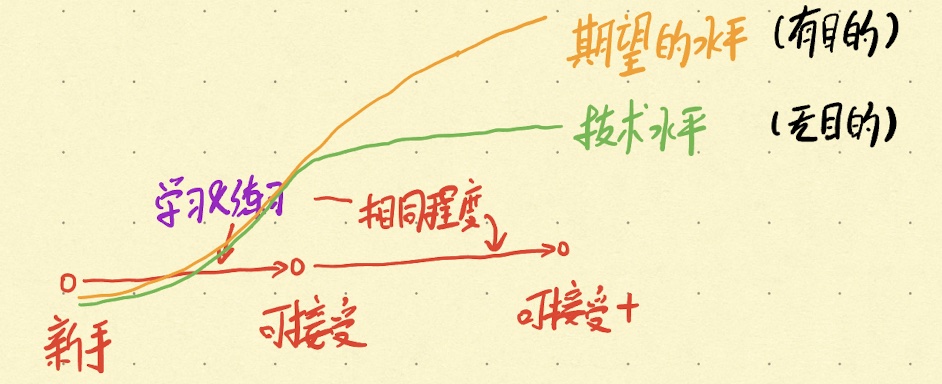 期望的水平 (有目的)
技术水平 (无目的)
学习&练习
相同程度
新手
可接受
可接受+